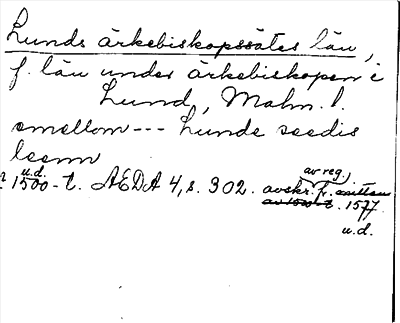 Lunds ärkebiskopssätes län,
f. län under ärkebiskopen i
Lund, Malm. l.
emellom --- Lunde seedis
leenn
u.d. av reg.
1500-t. AEDA 4, s. 302. avskr. fr.
av 1500-t. 1577.
u.d.